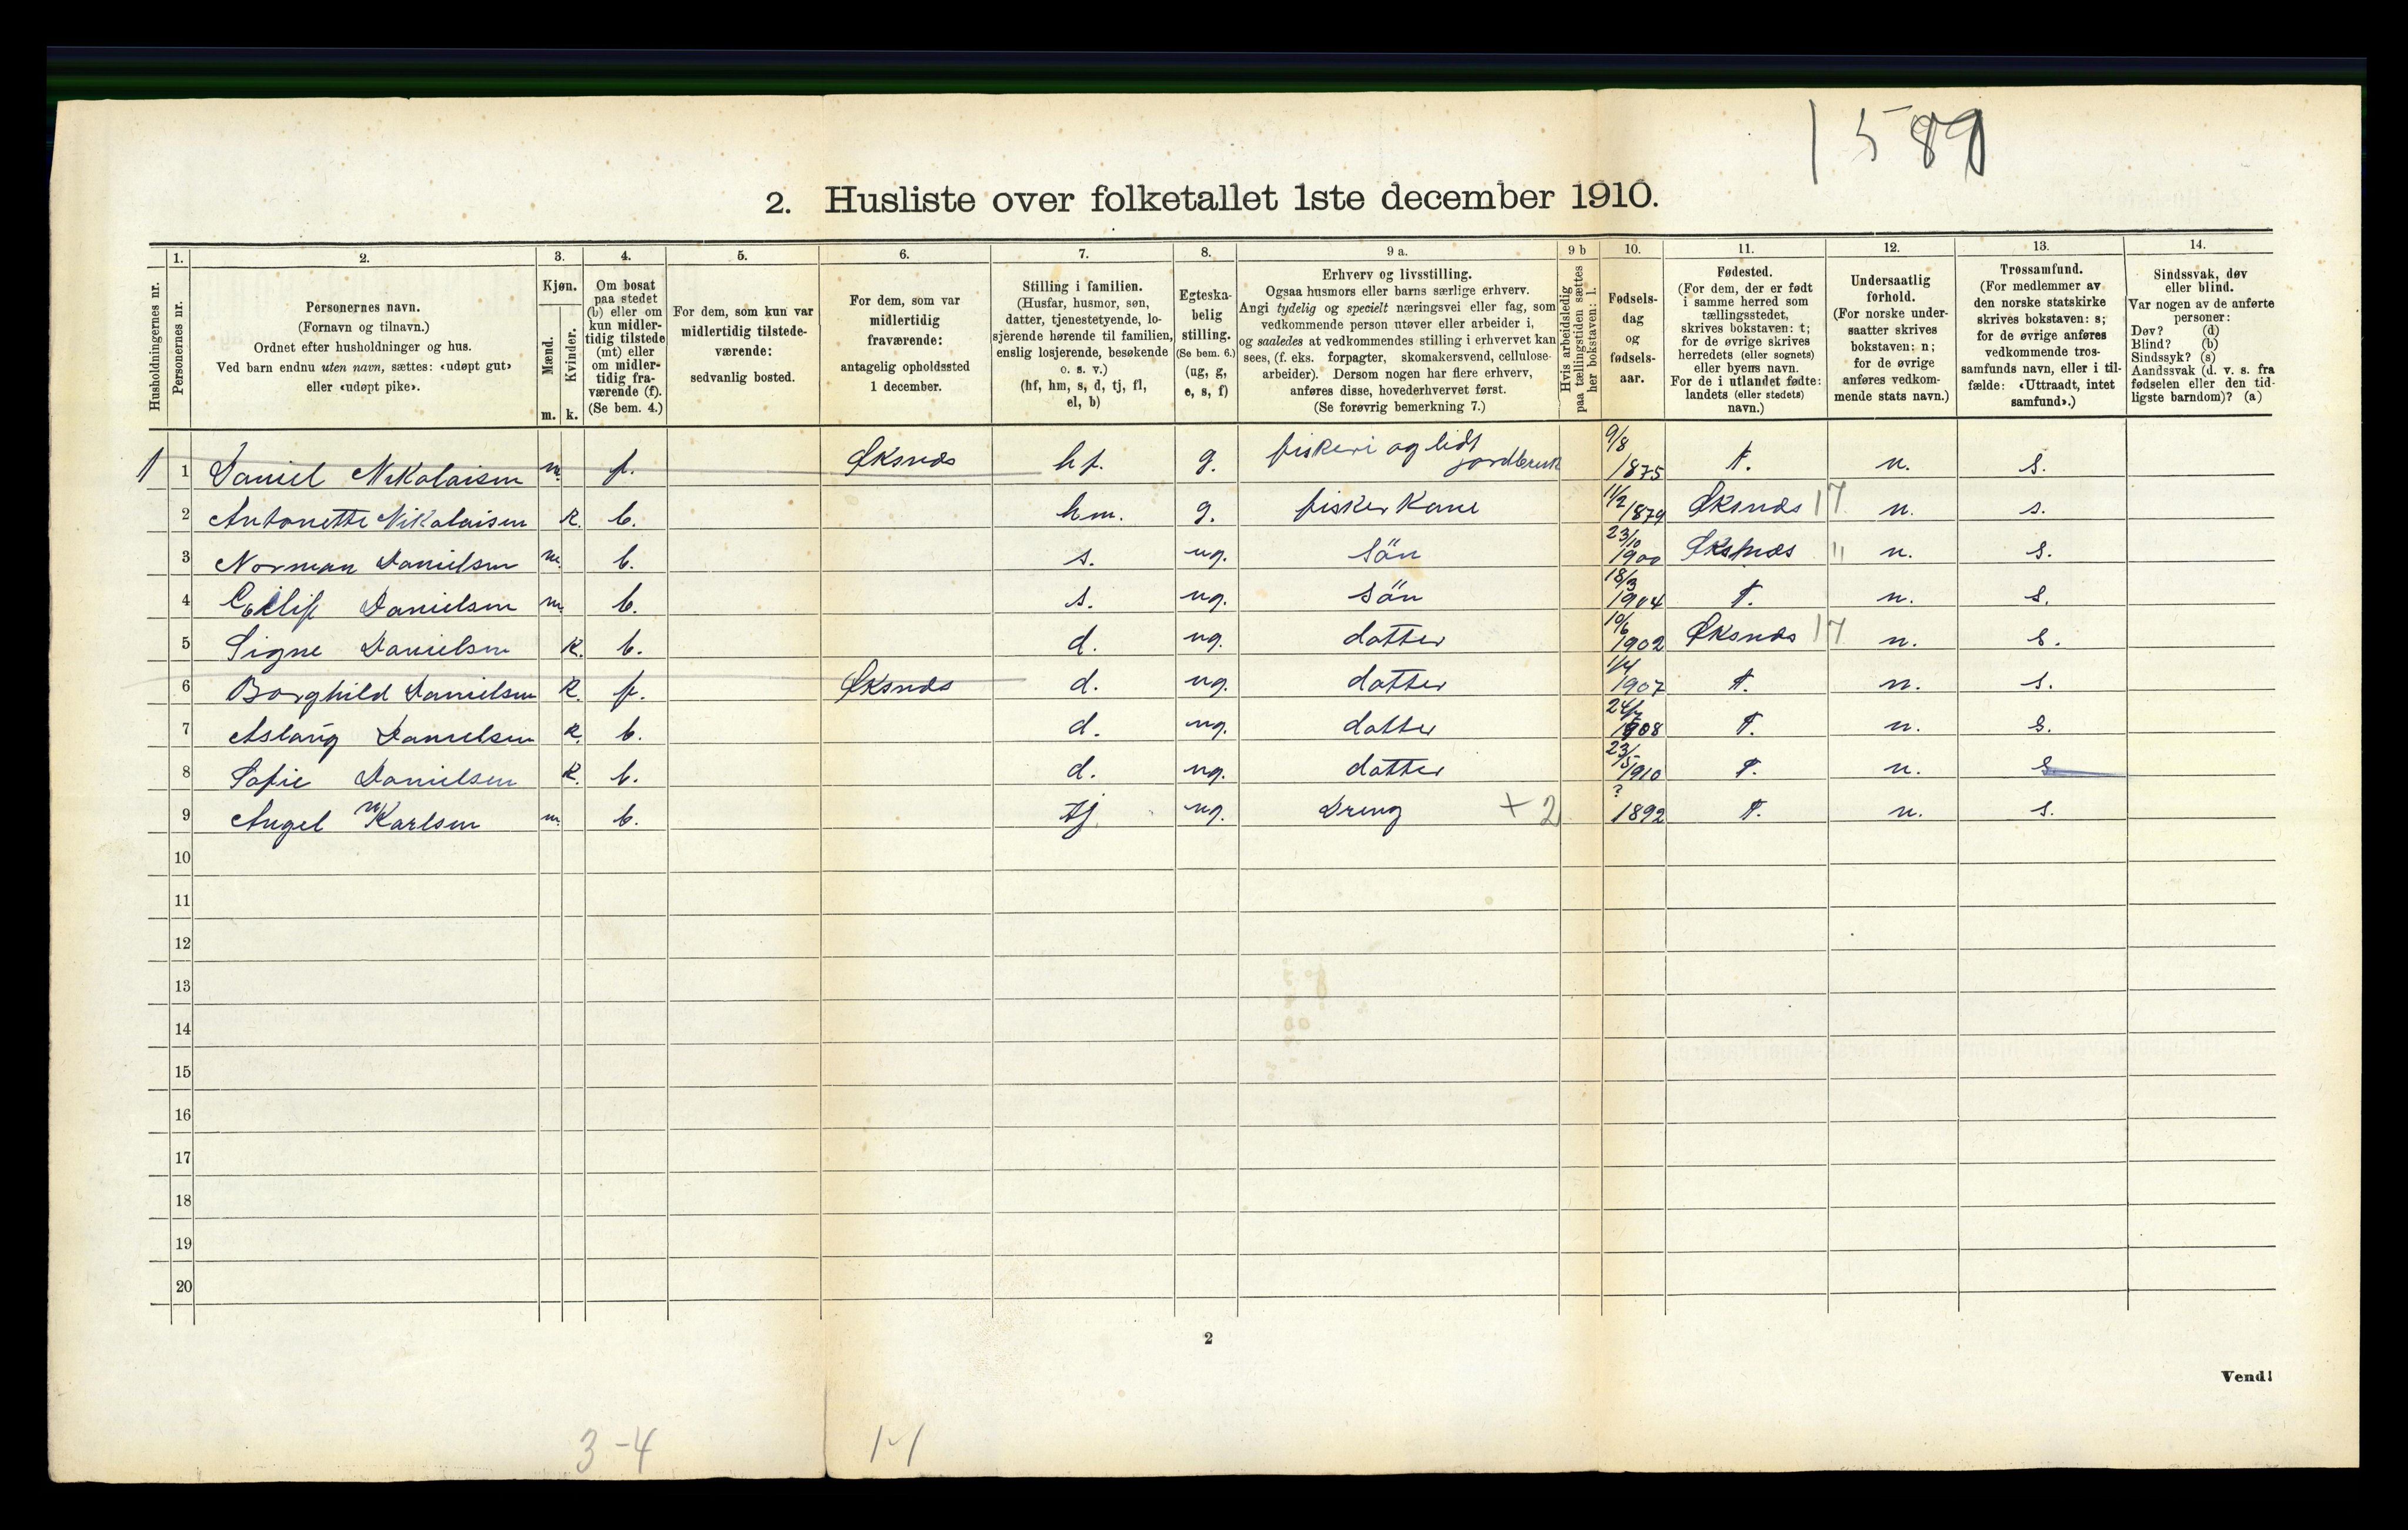 1589
2. Husliste over folketallet 1ste december 1910.
Husholdningernes nr.
1. Personernes nr.
2. Personernes navn.
(Fornavn og tilnavn.)
Ordnet efter husholdninger og hus.
Ved barn endnu uten navn, sættes: «udøpt gut»
eller «udøpt pike».
3. Kjøn.
Mænd. m.
Kvinder. k.
4. Om bosat
paa stedet
(b) eller om
kun midler-
tidig tilstede
(mt) eller
om midler-
tidig fra-
værende (f).
(Se bem. 4.)
5. For dem, som kun var
midlertidig tilstede-
værende:
sedvanlig bosted.
6. For dem, som var
midlertidig
fraværende:
antagelig opholdssted
1 december.
7. Stilling i familien.
(Husfar, husmor, søn,
datter, tjenestetyende, lo-
sjerende hørende til familien,
enslig losjerende, besøkende
o. s. v.)
(hf, hm, s, d, tj, fl,
el, b)
8. Egteska-
belig
stilling.
(Se bem. 6.)
(ug, g,
e, s, f)
9 a. Erhverv og livsstilling.
Ogsaa husmors eller barns særlige erhverv.
Angi tydelig og specielt næringsvei eller fag, som
vedkommende person utøver eller arbeider i,
og saaledes at vedkommendes stilling i erhvervet kan
sees, (f. eks. forpagter, skomakersvend, cellulose-
arbeider). Dersom nogen har flere erhverv,
anføres disse, hovederhvervet først.
(Se forøvrig bemerkning 7.)
9 b Hvis arbeidsledig
paa tællingstiden sættes
her bokstaven: l.
10. Fødsels-
dag
og
fødsels-
aar.
11. Fødested.
(For dem, der er født
i samme herred som
tællingsstedet,
skrives bokstaven: t;
for de øvrige skrives
herredets (eller sognets)
eller byens navn.
For de i utlandet fødte:
landets (eller stedets)
navn.)
12. Undersaatlig
forhold.
(For norske under-
saatter skrives
bokstaven: n;
for de øvrige
anføres vedkom-
mende stats navn.)
13. Trossamfund.
(For medlemmer av
den norske statskirke
skrives bokstaven: s;
for de øvrige anføres
vedkommende tros-
samfunds navn, eller i til-
fælde: «Uttraadt, intet
samfund».)
14. Sindssvak, døv
eller blind.
Var nogen av de anførte
personer:
Døv? (d)
Blind? (b)
Sindssyk? (s)
Aandssvak (d. v. s. fra
fødselen eller den tid-
ligste barndom)? (a)
1 1 Daniel Nikolaisen m. f. Øksnes hf. g. fiskeri og lidt jordbruk 9/8 1875 t. n. s.
2 Antonette Nikolaisen K. b. hm. g. fisker Kone 11/2 1879 Øksnes 17 n. s.
3 Norman Danielsen m. b. s. ug. sön 23/10 1900 Øksnes " n. s.
4 Eilif Danielsen m. b. s. ug. sön 18/3 1904 t. n. s.
5 Signe Danielsen K. b. d. ug. datter 10/6 1902 Øksnes 17 n. s.
6 Borghild Danielsen K. f. Øksnes d. ug. datter 1/4 1907 t. n. s.
7 Aslaug Danielsen K. b. d. ug. datter 1908 t. n. s.
8 Sofie Danielsen K. b. d. ug. datter 23/5 1910 t. n. s
9 Angel Karlsen m. b. tj. ug. Dreng + 2 ? 1892 t. n. s.
10
11
12
13
14
15
16
17
18
19
20
2
Vend!
3-4 1-1